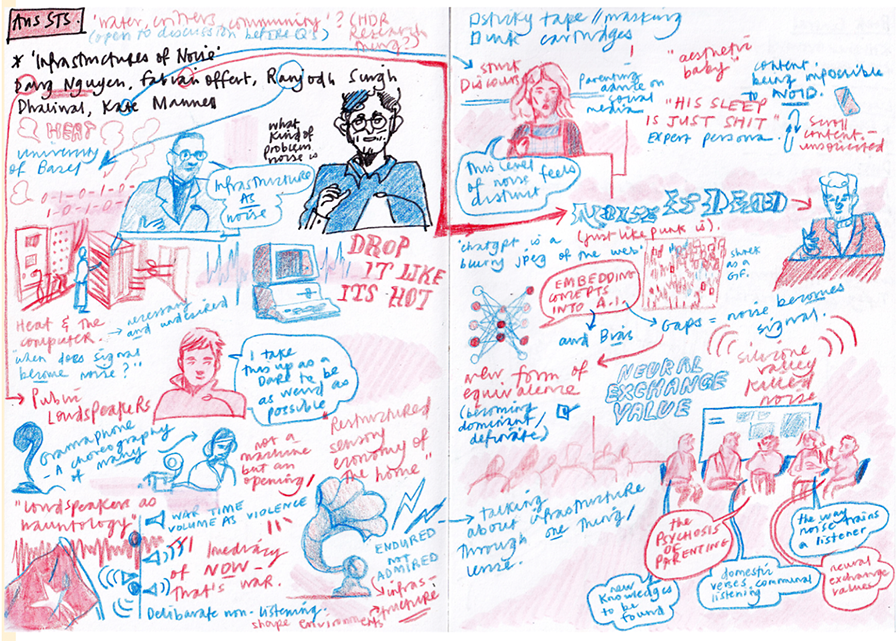 Aus STS
'water, critters, community'? (HDR
(open to discussion before Q's) Research
thing?)
* 'Infrastructures of Noise'
Dang Nguyen, Fabian Offert, Ranjodh Singh
Dhaliwal, Kate Mannell
HEAT
University
of Basel
0-1-0-1-0-
1-0-1-0-
what
kind of
problem
noise is
Infrastructure
AS
noise
DROP
IT LIKE
ITS HOT
Heat & the
computer.
→ necessary
and undesired
"when does signal
become noise?"
I take
this up as a
Dare to be
as weird as
possible
→ Public
LOUDSPEAKERS
Gramaphone
- A choreography
of many
not a
machine
but an
opening/
Restructured
sensory
economy of
the home"
"Loudspeakers as
hauntology"
WAR TIME
VOLUME AS VIOLENCE
Imediacy
of NOW -
That's war.
Deliberate non-listening.
shape environments
ENDURED
NOT
ADMIRED
infras-
tructure
sticky tape // masking
cartridges
Stuck
Discourse
Parenting
advice on
social
media
"aesthetic
baby"
content.
being impossible
to AVOID.
"HIS SLEEP
IS JUST SHIT"
Expert persona.
scroll
content -
unsolicited
This level
of noise feels
distinct
NOISE IS DEAD
(just like punk is).
'chatgpt is a
blurry jpeg of the web'
shrek
as a
GIF.
EMBEDDING
CONCEPTS
INTO A.I.
and Bias
Gaps = noise becomes
signal.
new form of
equivalence
(becoming
dominant/
NEURAL
EXCHANGE
VALUE
silicone
valley
killed
noise
→ talking
about infrastructure
through one thing/
lense.
the
PSYCHOSIS
OF
PARENTING
the way
noise trains
a listener
new
knowledges
to be
found
domestic
verses communal
listening
neural
exchange
values